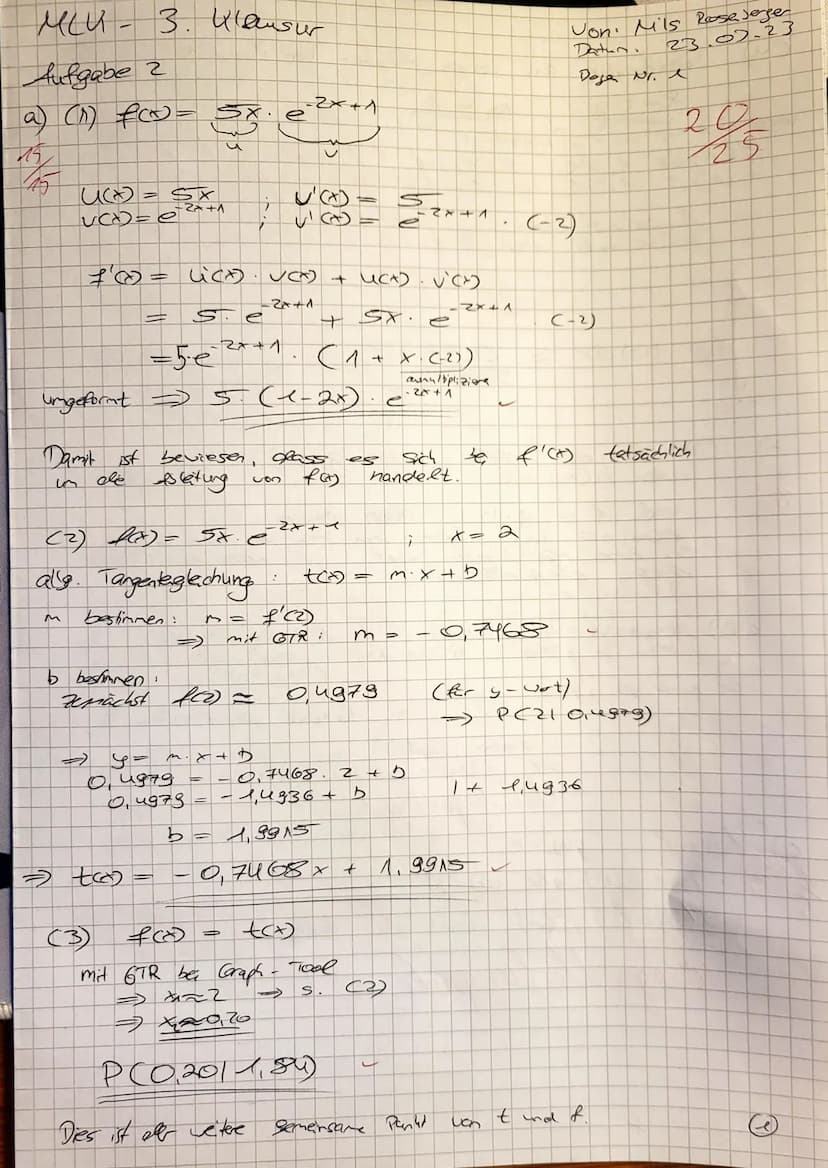 MLK - 3. Klausur
Von: Nils
Datum: 23.02.23
Bogen Nr. 1
Aufgabe 2
20/25
a) (1) f(x) = 5x · e^{-2x+1}
u v
15/15
u(x) = 5x ; u'(x) = 5
v(x) = e^{-2x+1} ; v'(x) = e^{-2x+1} · (-2)
f'(x) = u'(x) · v(x) + u(x) · v'(x)
= 5 · e^{-2x+1} + 5x · e^{-2x+1} · (-2)
= 5·e^{-2x+1} · (1 + x·(-2))
ausmultiplizieren
umgeformt => 5 · (1-2x) · e^{-2x+1} ✓
Damit ist bewiesen, dass es sich f'(x) tatsächlich
um die Ableitung von f(x) handelt.
(2) f(x) = 5x · e^{-2x+1} ; x = 2
allg. Tangentengleichung : t(x) = m·x + b
m bestimmen: m = f'(2)
=> mit GTR: m = -0,7468 ✓
b bestimmen:
zunächst f(2) ≈ 0,4979 (für y-Wert)
=> P(2|0,4979)
=> y = m·x + b
0,4979 = -0,7468 · 2 + b
0,4979 = -1,4936 + b | + 1,4936
b = 1,9915
=> t(x) = -0,7468x + 1,9915 ✓
(3) f(x) = t(x)
mit GTR bei Graph-Tool
=> x₁≈2 -> s. (2)
=> x₂≈0,20
P(0,20|1,84) ✓
Dies ist der weitere gemeinsame Punkt von t und f.
1